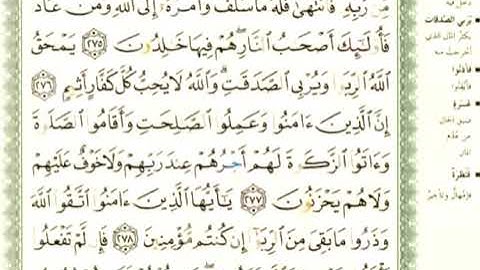 مِّن رَّبِّهِۦ فَٱنتَهَىٰ فَلَهُۥ مَا سَلَفَ وَأَمْرُهُۥٓ إِلَى ٱللَّهِ وَمَنْ عَادَ
فَأُو۟لَـٰٓئِكَ أَصْحَـٰبُ ٱلنَّارِ هُمْ فِيهَا خَـٰلِدُونَ ٢٧٥ يَمْحَقُ
ٱللَّهُ ٱلرِّبَوٰا۟ وَيُرْبِى ٱلصَّدَقَـٰتِ وَٱللَّهُ لَا يُحِبُّ كُلَّ كَفَّارٍ أَثِيمٍ ٢٧٦
إِنَّ ٱلَّذِينَ ءَامَنُوا۟ وَعَمِلُوا۟ ٱلصَّـٰلِحَـٰتِ وَأَقَامُوا۟ ٱلصَّلَوٰةَ
وَءَاتَوُا۟ ٱلزَّكَوٰةَ لَهُمْ أَجْرُهُمْ عِندَ رَبِّهِمْ وَلَا خَوْفٌ عَلَيْهِمْ
وَلَا هُمْ يَحْزَنُونَ ٢٧٧ يَـٰٓأَيُّهَا ٱلَّذِينَ ءَامَنُوا۟ ٱتَّقُوا۟ ٱللَّهَ
وَذَرُوا۟ مَا بَقِىَ مِنَ ٱلرِّبَوٰٓا۟ إِن كُنتُم مُّؤْمِنِينَ ٢٧٨ فَإِن لَّمْ تَفْعَلُوا۟
يربي الصدقات
فأذنوا
عسرة
فنظرة